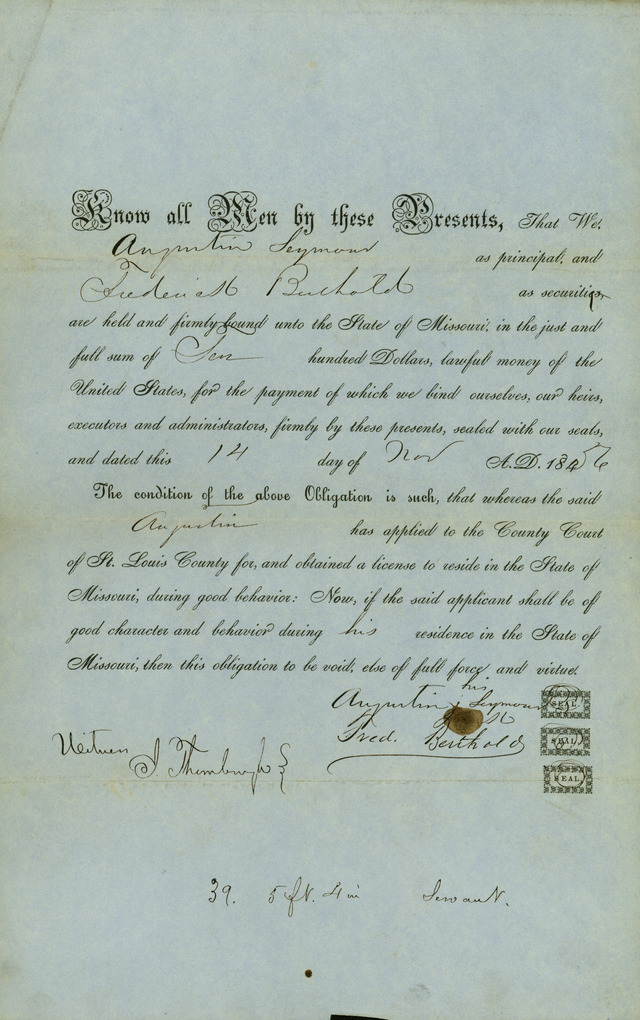 Know all Men by these Presents, That We,
Augustin Seymour as principal, and
Frederick Berthold as securities,
are held and firmly bound unto the State of Missouri, in the just and
full sum of Ten hundred Dollars, lawful money of the
United States, for the payment of which we bind ourselves, our heirs,
executors and administrators, firmly by these presents, sealed with our seals,
and dated this 14 day of Nov A.D. 184 56
The condition of the above Obligation is such, that whereas the said
Augustin has applied to the County Court
of St. Louis County for, and obtained a license to reside in the State of
Missouri, during good behavior: Now, if the said applicant shall be of
good character and behavior during his residence in the State of
Missouri, then this obligation to be void, else of full force and virtue.
his
Augustin x Seymour SEAL
Fred. Berthold SEAL
Witness
SEAL
39. 5 ft. 4 in Servant.